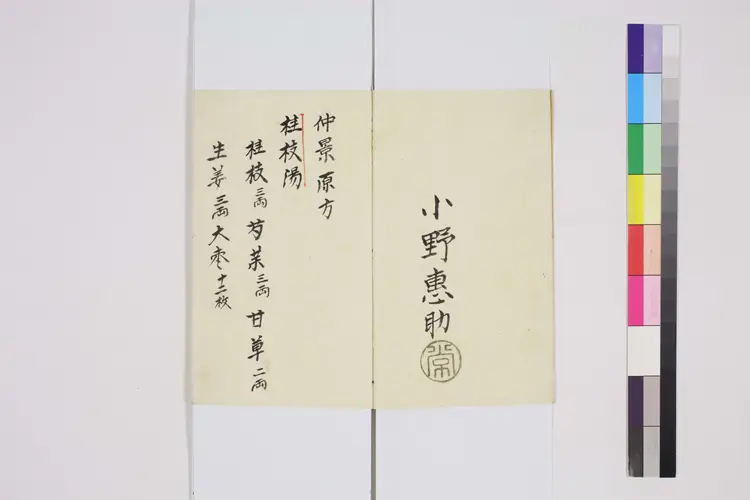 小野惠助
常
仲景原方
桂枝湯
桂枝三両芍薬三両甘草二両
生姜三両大枣十二枚